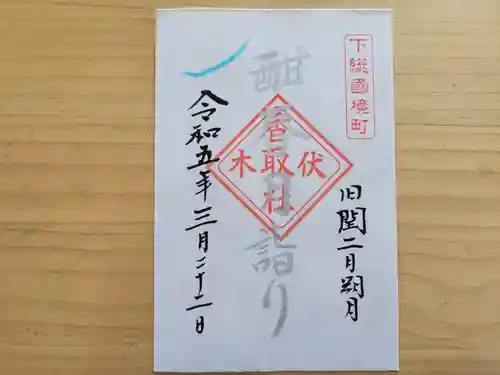 下総國境町
旧閏二月朔月
酣春月詣り
伏木
香取社
令和五年三月二十二日